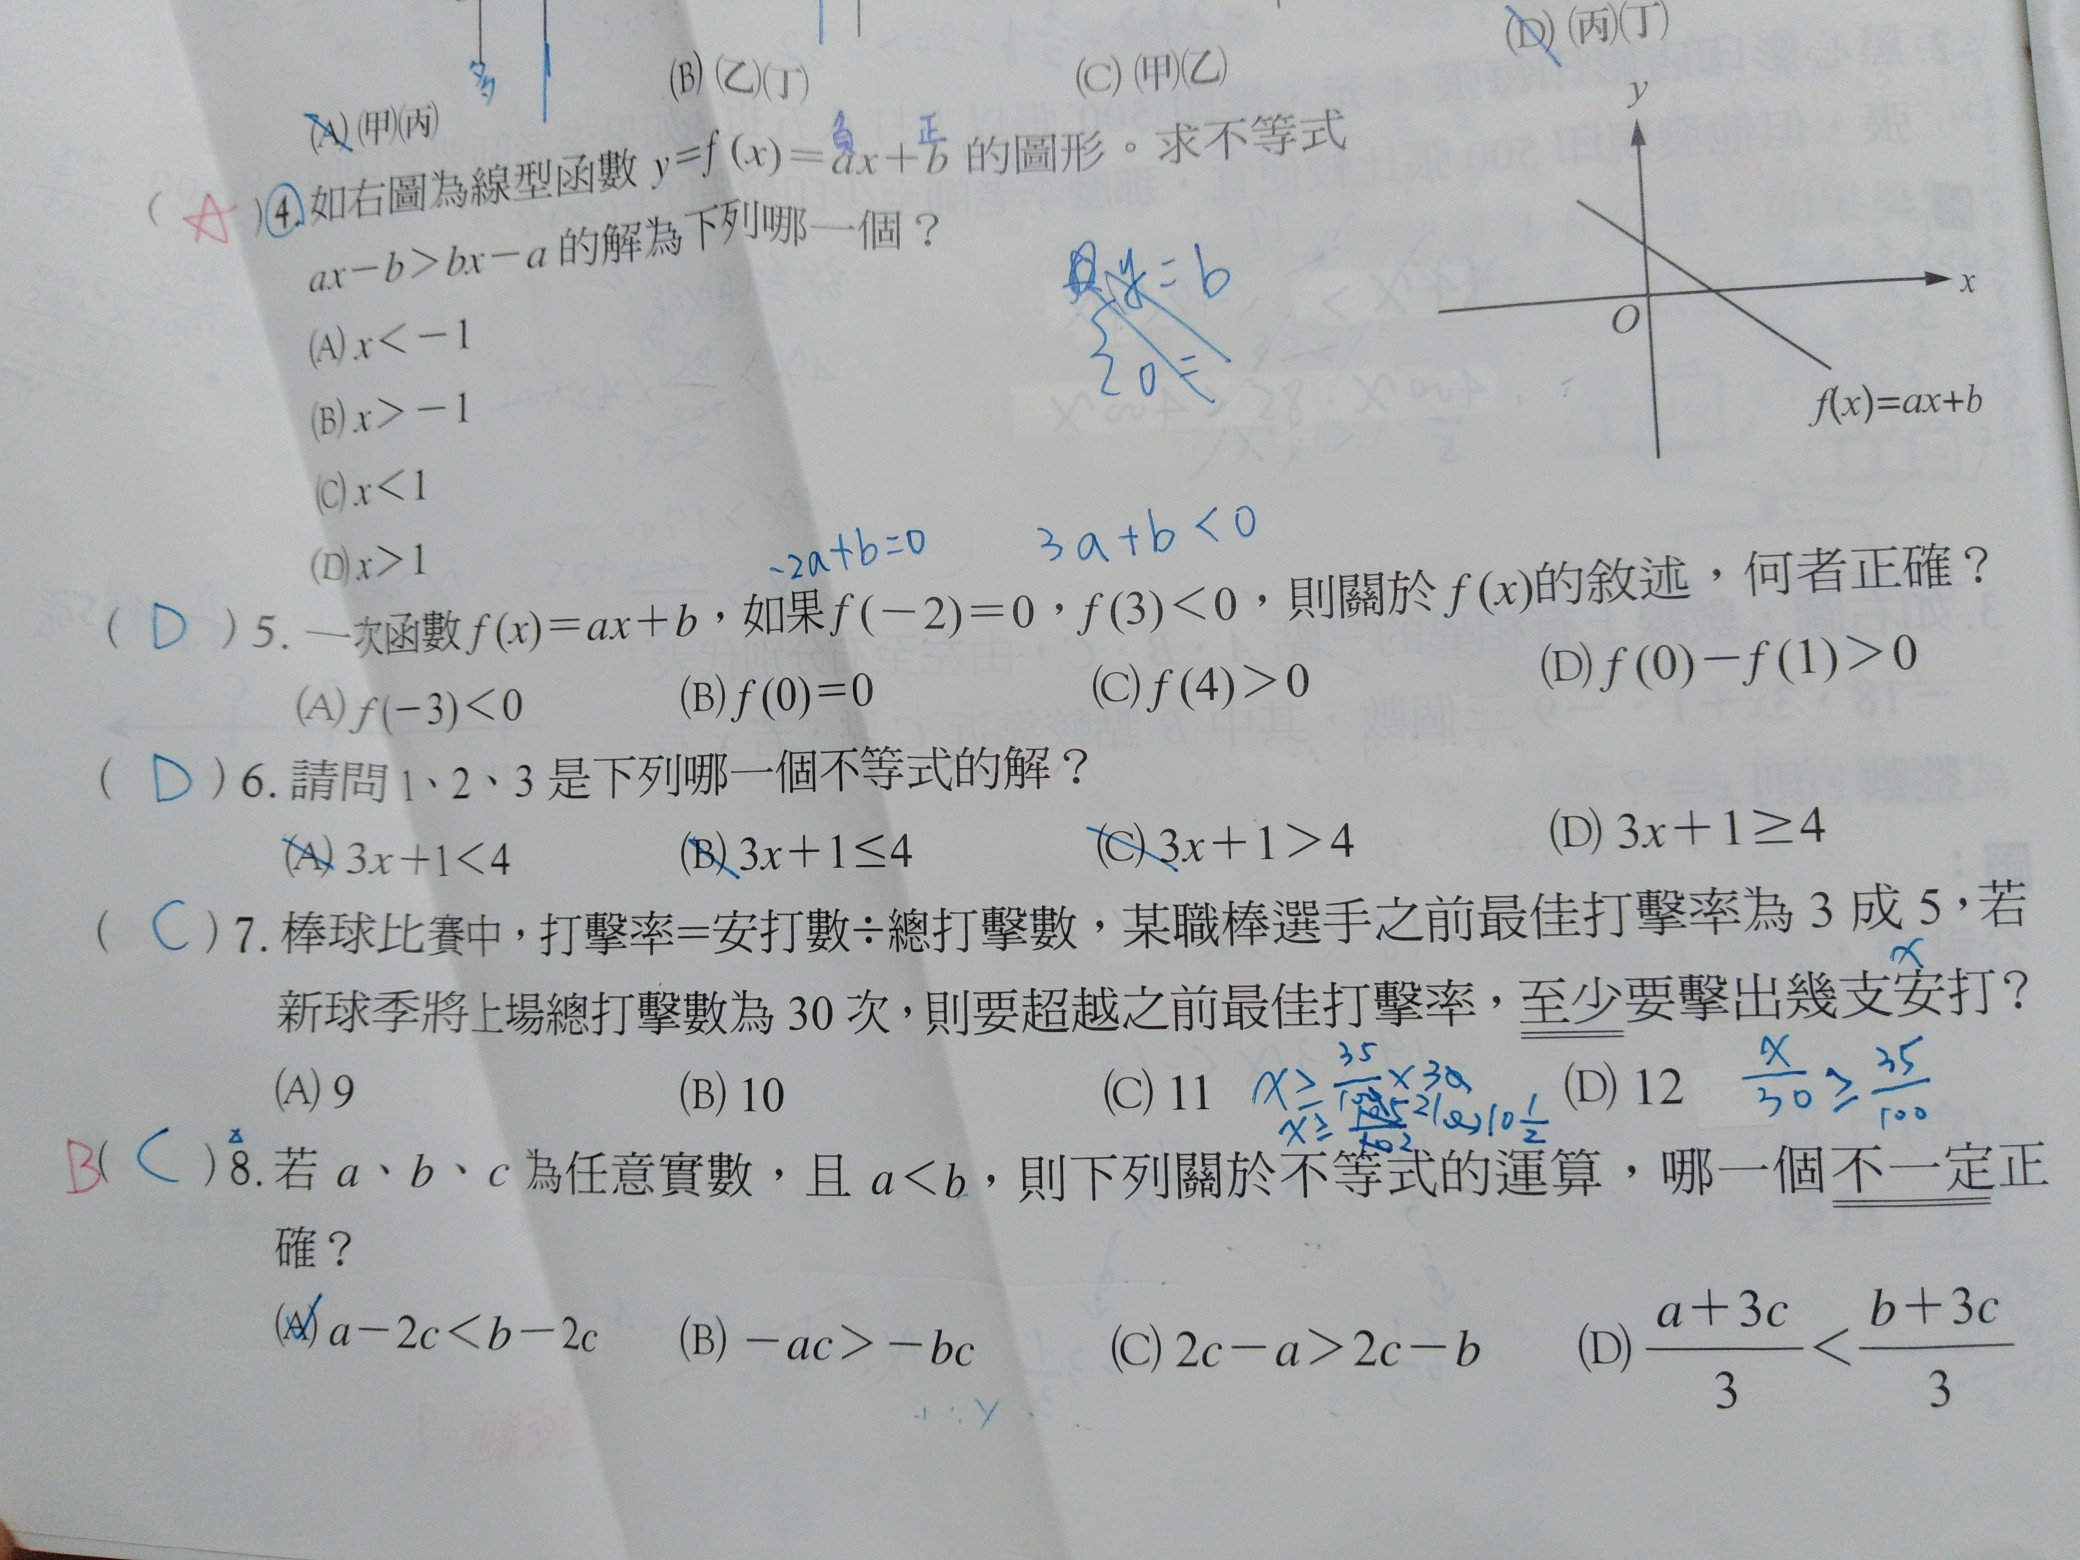 多
(A) (甲)(丙)
(B) (乙)(丁)
(C) (甲)(乙)
(D) (丙)(丁)
負 正
( A )4. 如右圖為線型函數 y=f (x)=ax+b 的圖形。求不等式
ax−b>bx−a 的解為下列哪一個？
(A) x<−1
(B) x>−1
(C) x<1
(D) x>1
y = b
0 =
y
x
O
f(x)=ax+b
-2a+b=0 3a+b<0
( D ) 5. 一次函數 f (x)=ax+b，如果 f (−2)=0，f (3)<0，則關於 f (x)的敘述，何者正確？
(A) f (−3)<0 (B) f (0)=0 (C) f (4)>0 (D) f (0)−f (1)>0
( D ) 6. 請問 1、2、3 是下列哪一個不等式的解？
(A) 3x+1<4 (B) 3x+1≤4 (C) 3x+1>4 (D) 3x+1≥4
( C ) 7. 棒球比賽中，打擊率=安打數÷總打擊數，某職棒選手之前最佳打擊率為 3 成 5，若
x
新球季將上場總打擊數為 30 次，則要超越之前最佳打擊率，至少要擊出幾支安打？
(A) 9 (B) 10 (C) 11 (D) 12
x≥ 35/100 ×30
x/30 ≥ 35/100
x≥ 10 1/2
B( C ) 8. 若 a、b、c 為任意實數，且 a<b，則下列關於不等式的運算，哪一個不一定正
確？
(A) a−2c<b−2c (B) −ac>−bc (C) 2c−a>2c−b (D) a+3c/3 < b+3c/3